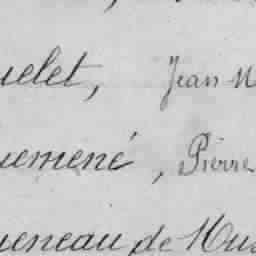 uelet, Jean M
uemené, Pierre
ueneau de Mus